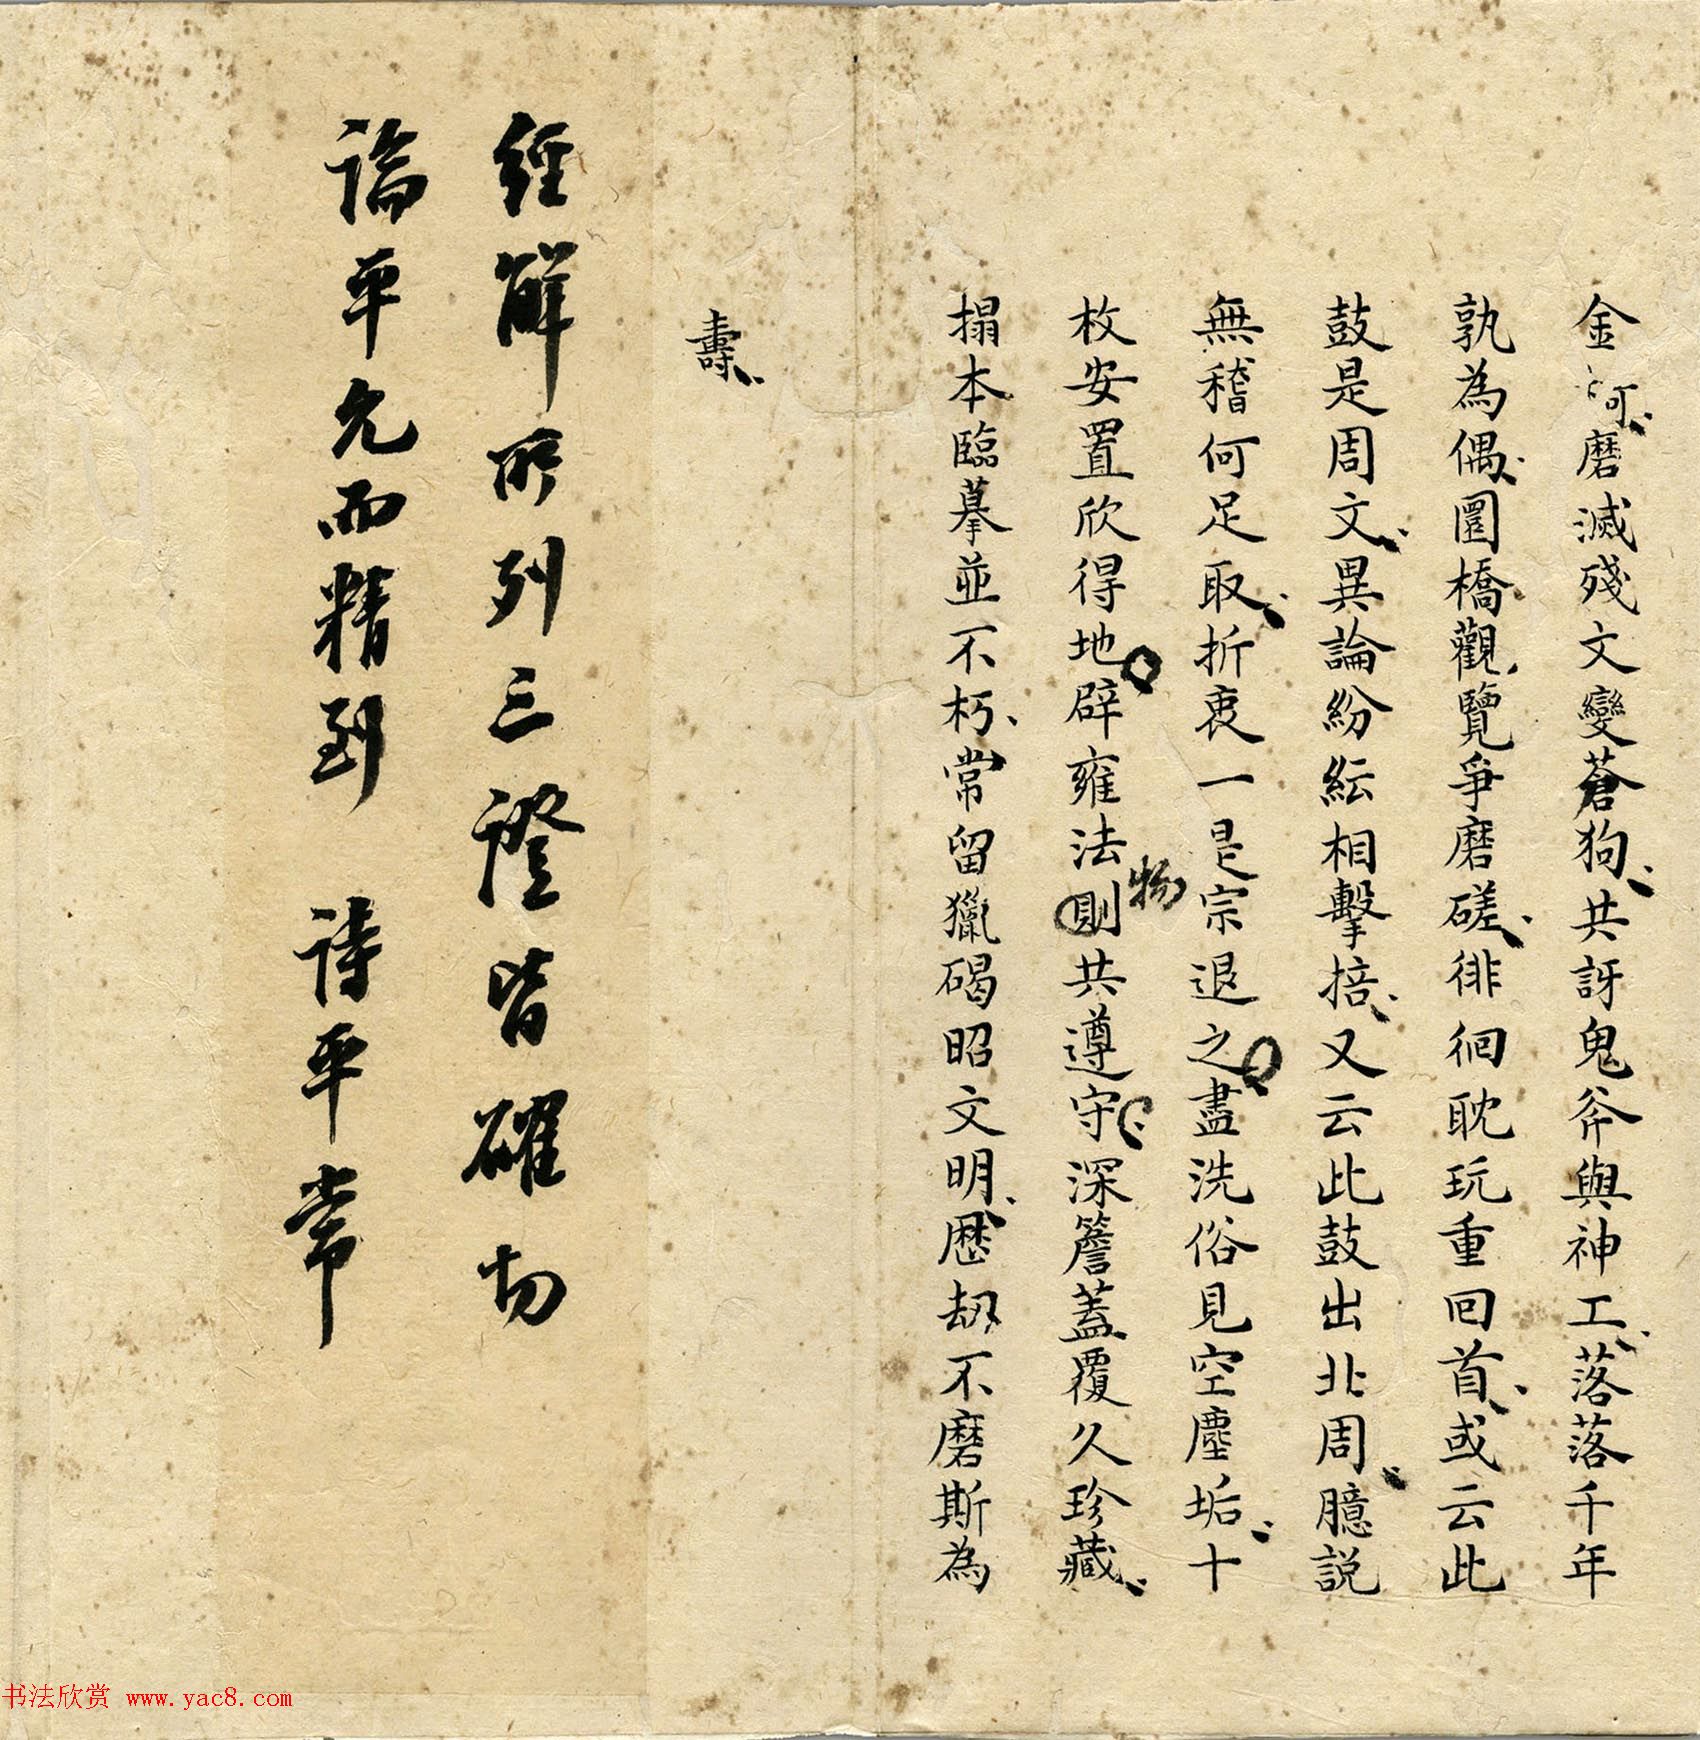 金何磨滅殘文變蒼狗共訝鬼斧與神工落落千年
孰為偶圜橋觀覽爭磨磋徘徊耽玩重回首或云此
鼓是周文異論紛紜相擊掊又云此鼓出北周臆説
無稽何足取折衷一是宗退之盡洗俗見空塵垢十
枚安置欣得地辟雍法則共遵守深簷蓋覆久珍藏
物
搨本臨摹並不朽常留獵碣昭文明歷劫不磨斯為
壽
經解所列三證皆確切
論平允而精到 詩平常
书法欣赏 www.yac8.com